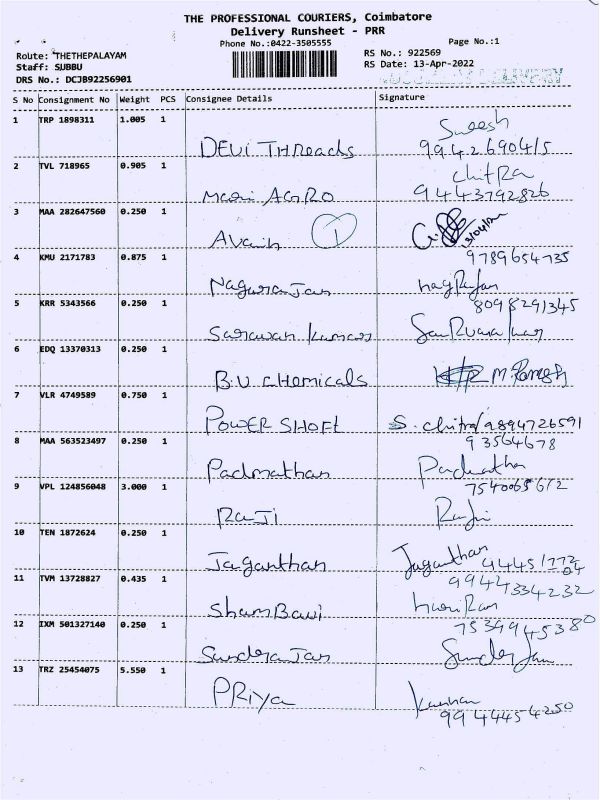 THE PROFESSIONAL COURIERS, Coimbatore
Delivery Runsheet - PRR
Phone No.:0422-3505555
Page No.:1
Route: THETHEPALAYAM
RS No.: 922569
Staff: SUBBU
RS Date: 13-Apr-2022
DRS No.: DCJB92256901
S No Consignment No Weight PCS Consignee Details Signature
1 TRP 1898311 1.005 1
DEVi THReads 9942690415
2 TVL 718965 0.905 1 chitRa
AGRO 9443792826
3 MAA 282647560 0.250 1
1 13/04/22
4 KMU 2171783 0.875 1 9789654735
NagaraJan
5 KRR 5343566 0.250 1 8098291345
Sarawan kumar
6 EDQ 13370313 0.250 1
B.U cHemicals M.Ramesh
7 VLR 4749589 0.750 1
POWER SHOFt S. chitra/9894726591
8 MAA 563523497 0.250 1 93564678
Padmathan
9 VPL 124856048 3.000 1 7540065612
RaJi
10 TEN 1872624 0.250 1
Jaganthan Jaganthan
11 TVM 13728827 0.435 1 9944334232
ShamBavi hariRam
12 IXM 501327140 0.250 1 7539945380
SunderaJan
13 TRZ 25454075 5.550 1
PRiya 9944454250